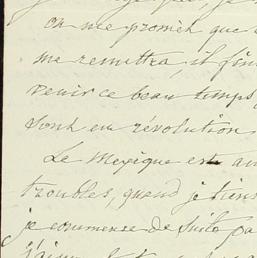 on me promet que
me remettra, il fini
venir ce beau temps
sont en révolution
Le Mexique est au
troubles, quand je
je commence de suite pa